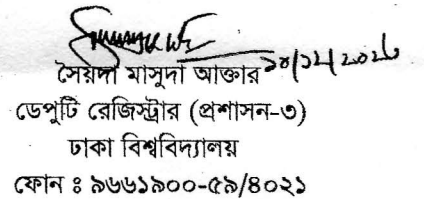 সৈয়দা মাসুদা আক্তার
ডেপুটি রেজিস্ট্রার (প্রশাসন-৩)
ঢাকা বিশ্ববিদ্যালয়
ফোন ঃ ৯৬৬১৯০০-৫৯/৪০২১